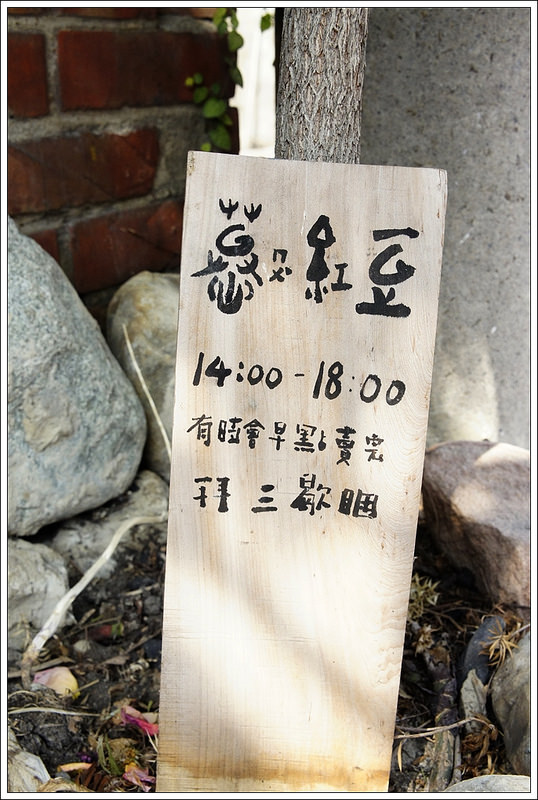 慕紅豆
14:00-18:00
有時會早點賣完
拜三歇睏